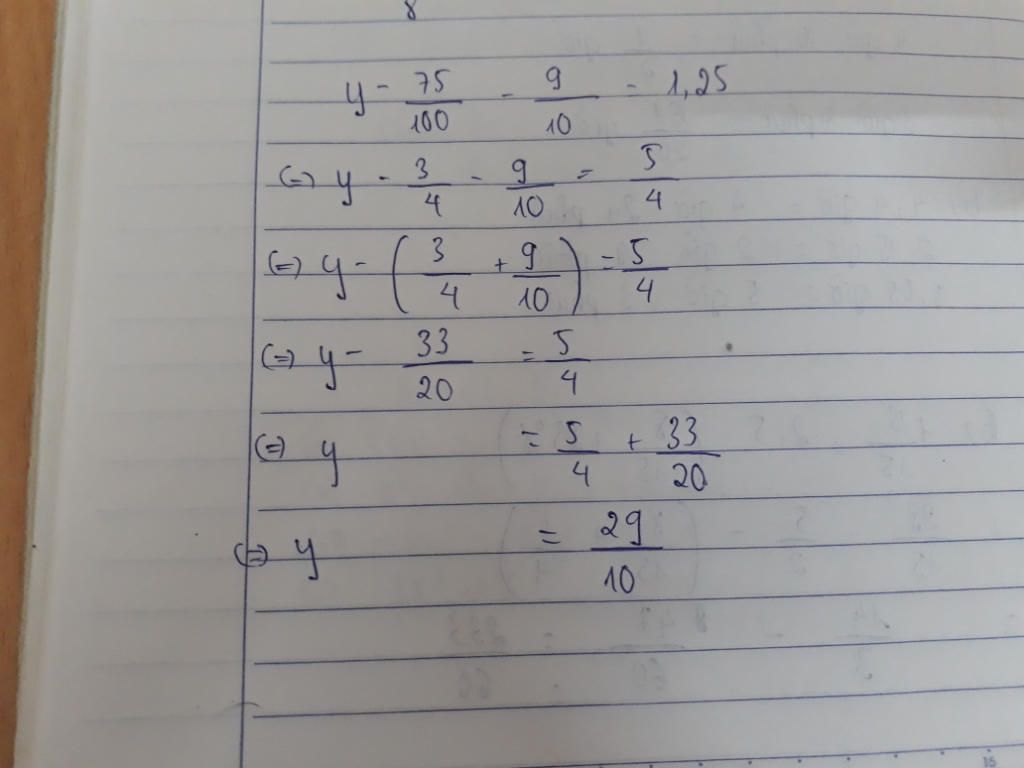 8
y - 75/100 - 9/10 = 1,25
(=) y - 3/4 - 9/10 = 5/4
(=) y - (3/4 + 9/10) = 5/4
(=) y - 33/20 = 5/4
(=) y = 5/4 + 33/20
(=) y = 29/10
15